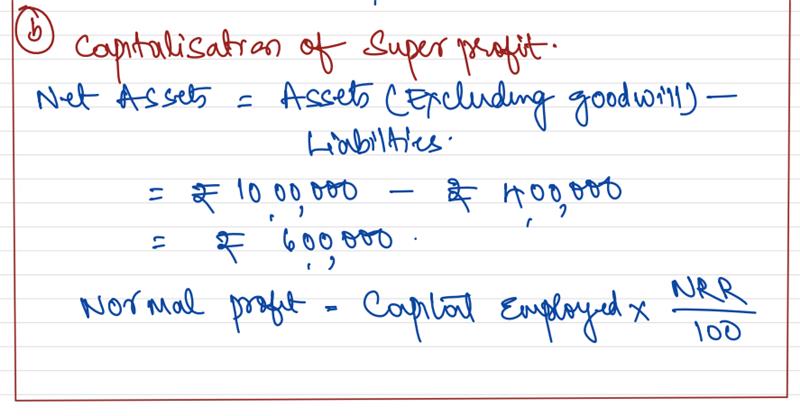 (b) Capitalisation of Super profit.
Net Assets = Assets (Excluding goodwill) –
Liabilties.
= ₹ 10,00,000 – ₹ 400,000
= ₹ 600,000.
Normal profit = Capital Employed × NRR/100